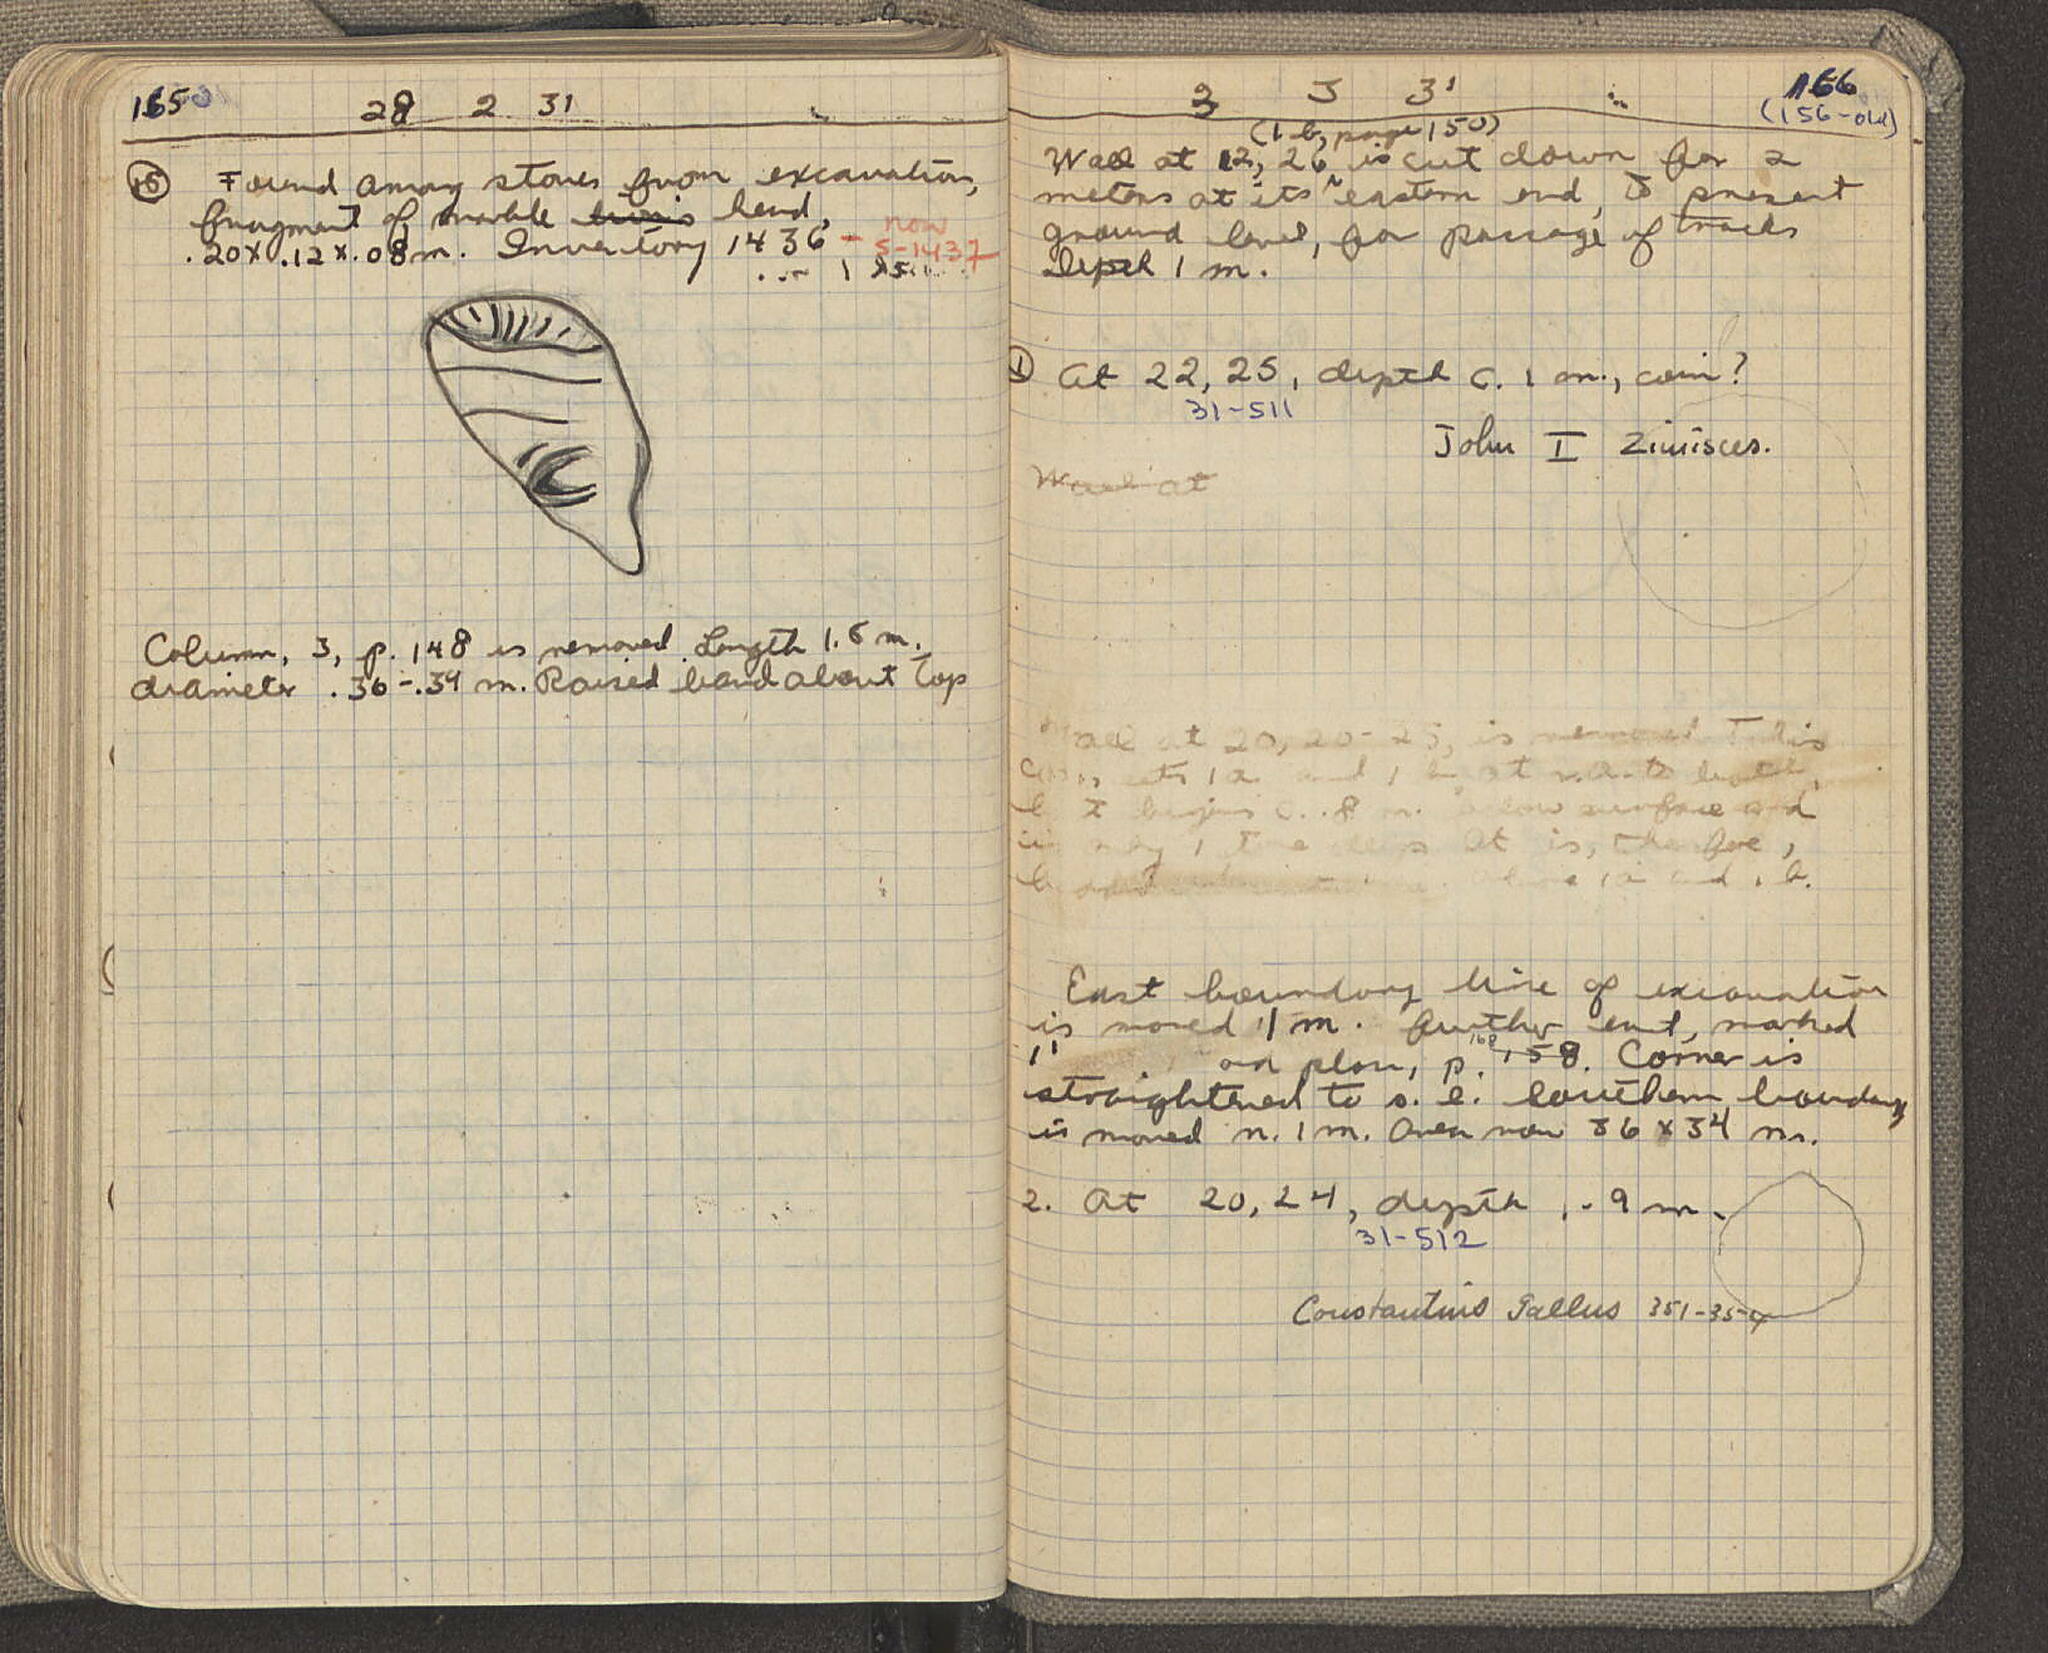 165
28 2 31
Found among stones from excavation,
fragment of marble lion's head,
.20 x .12 x .08 m. Inventory 1436 - now
S-1437
Column, 3, p. 148 is removed. Length 1.6 m.
diameter .36-.39 m. Raised band about top
166
(156-old)
3 3 31
(1 b, page 150)
Wall at 12, 26 is cut down for 2
meters at its eastern end, to present
ground level, for passage of tracks
Depth 1 m.
1 At 22, 25, depth c. 1 m., coin?
31-511
John I Zimisces.
Wall at
Wall at 20, 20-25, is removed This
1 a and 1 b at r.a. to both,
begins c. .8 m. below surface and
It is, therefore,
1 a and 1 b.
East boundary line of excavation
is moved 1 m. further east, marked
1' on plan, p. 168 158. Corner is
straightened to s. e. Southern boundary
is moved n. 1 m. Area now 36 x 34 m.
2. At 20, 24, depth .9 m.
31-512
Constantius Gallus 351-354